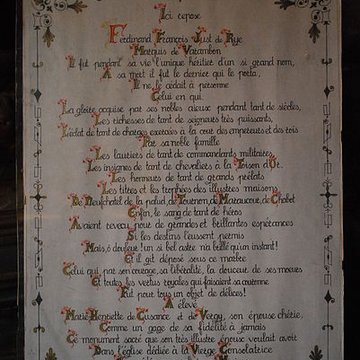 Ici repose
Ferdinand François Just de Rye
Marquis de Varambon
Il fut pendant sa vie l'unique héritier d'un si grand nom,
A sa mort il fut le dernier qui le porta,
Il ne le cédait à personne
Celui en qui
La gloire acquise par ses nobles aïeux pendant tant de siècles,
Les richesses de tant de seigneurs très puissants,
L'éclat de tant de charges exercées à la cour des empereurs et des rois
Par sa noble famille
Les lauriers de tant de commandants militaires
Les insignes de tant de chevaliers à la Toison d'Or.
Les honneurs de tant de grands prélats
Les titres et les trophées des illustres maisons
De Neufchâtel de la palud, de Tournon, de Chabot
Enfin, le sang de tant de héros
Avaient revécu pour de grandes et brillantes espérances
Si les destins l'eussent permis
Mais, ô douleur! un si bel astre n'a brillé qu'un instant!
Et il gît déposé sous ce marbre
Celui qui par son courage, sa libéralité, la douceur de ses mœurs
Et toutes les vertus royales qui faisaient sa couronne
Fut pour tous un objet de délices!
A élevé
Marie Henriette de Cusance et de Vergy, son épouse chérie,
Comme un gage de sa fidélité à jamais
Ce monument sacré que son très illustre époux voulait avoir
Dans l'église dédiée à la Vierge Consolatrice